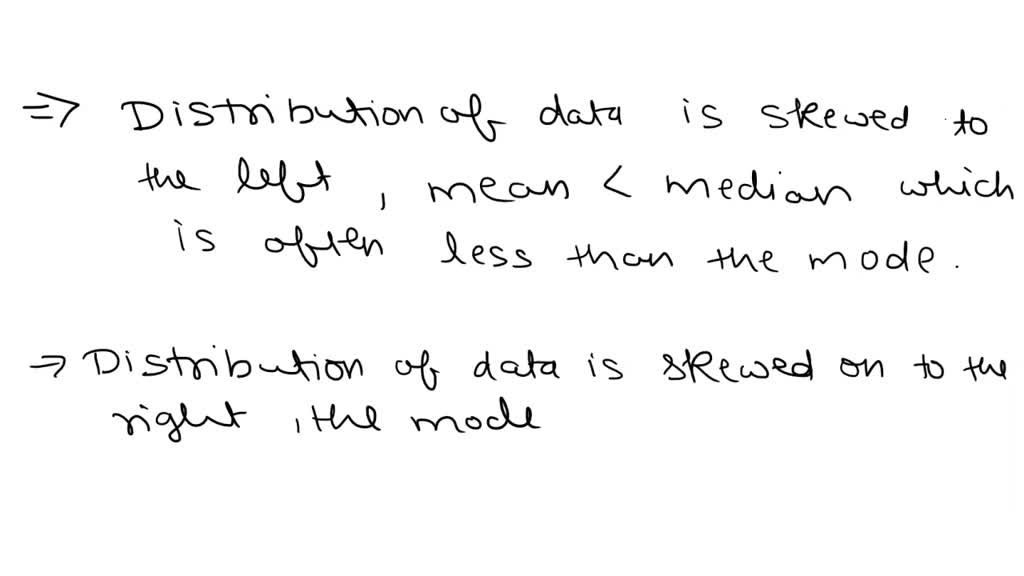 ⇒ Distribution of data is skewed to
the left, mean < median which
is often less than the mode.
→ Distribution of data is skewed on to the
right, the mode